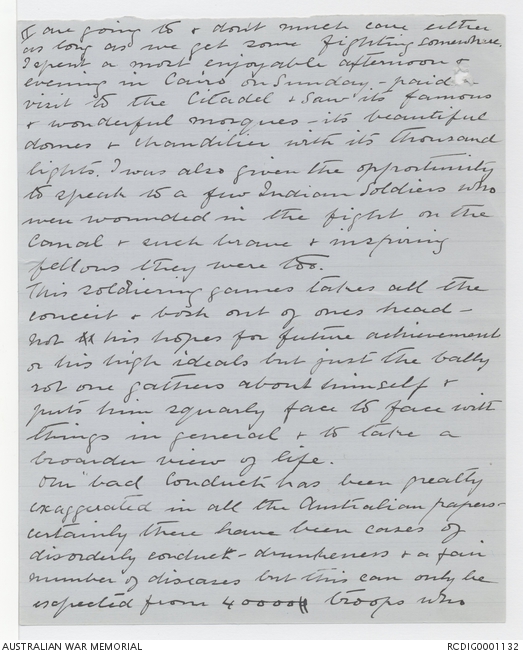 are going to & don't much care either
as long as we get some fighting somewhere.
I spent a most enjoyable afternoon &
evening in Cairo on Sunday - paid a
visit to the Citadel & saw its famous
& wonderful mosques - its beautiful
domes & chandilier with its thousand
lights. I was also given the opportunity
to speak to a few Indian Soldiers who
were wounded in the fight on the
Canal & such brave & inspiring
fellows they were too.
This soldiering games takes all the
conceit & bosh out of ones head -
not his hopes for future achievement
or his high ideals but just the bally
rot one gathers about himself &
puts him squarly face to face with
things in general & to take a
broarder view of life.
Our bad Conduct has been greatly
exaggerated in all the Australian papers -
certainly there have been cases of
disorderly conduct - drunkeness & a fair
number of diseases but this can only be
expected from 40000 troops who
AUSTRALIAN WAR MEMORIAL
RCDIG0001132